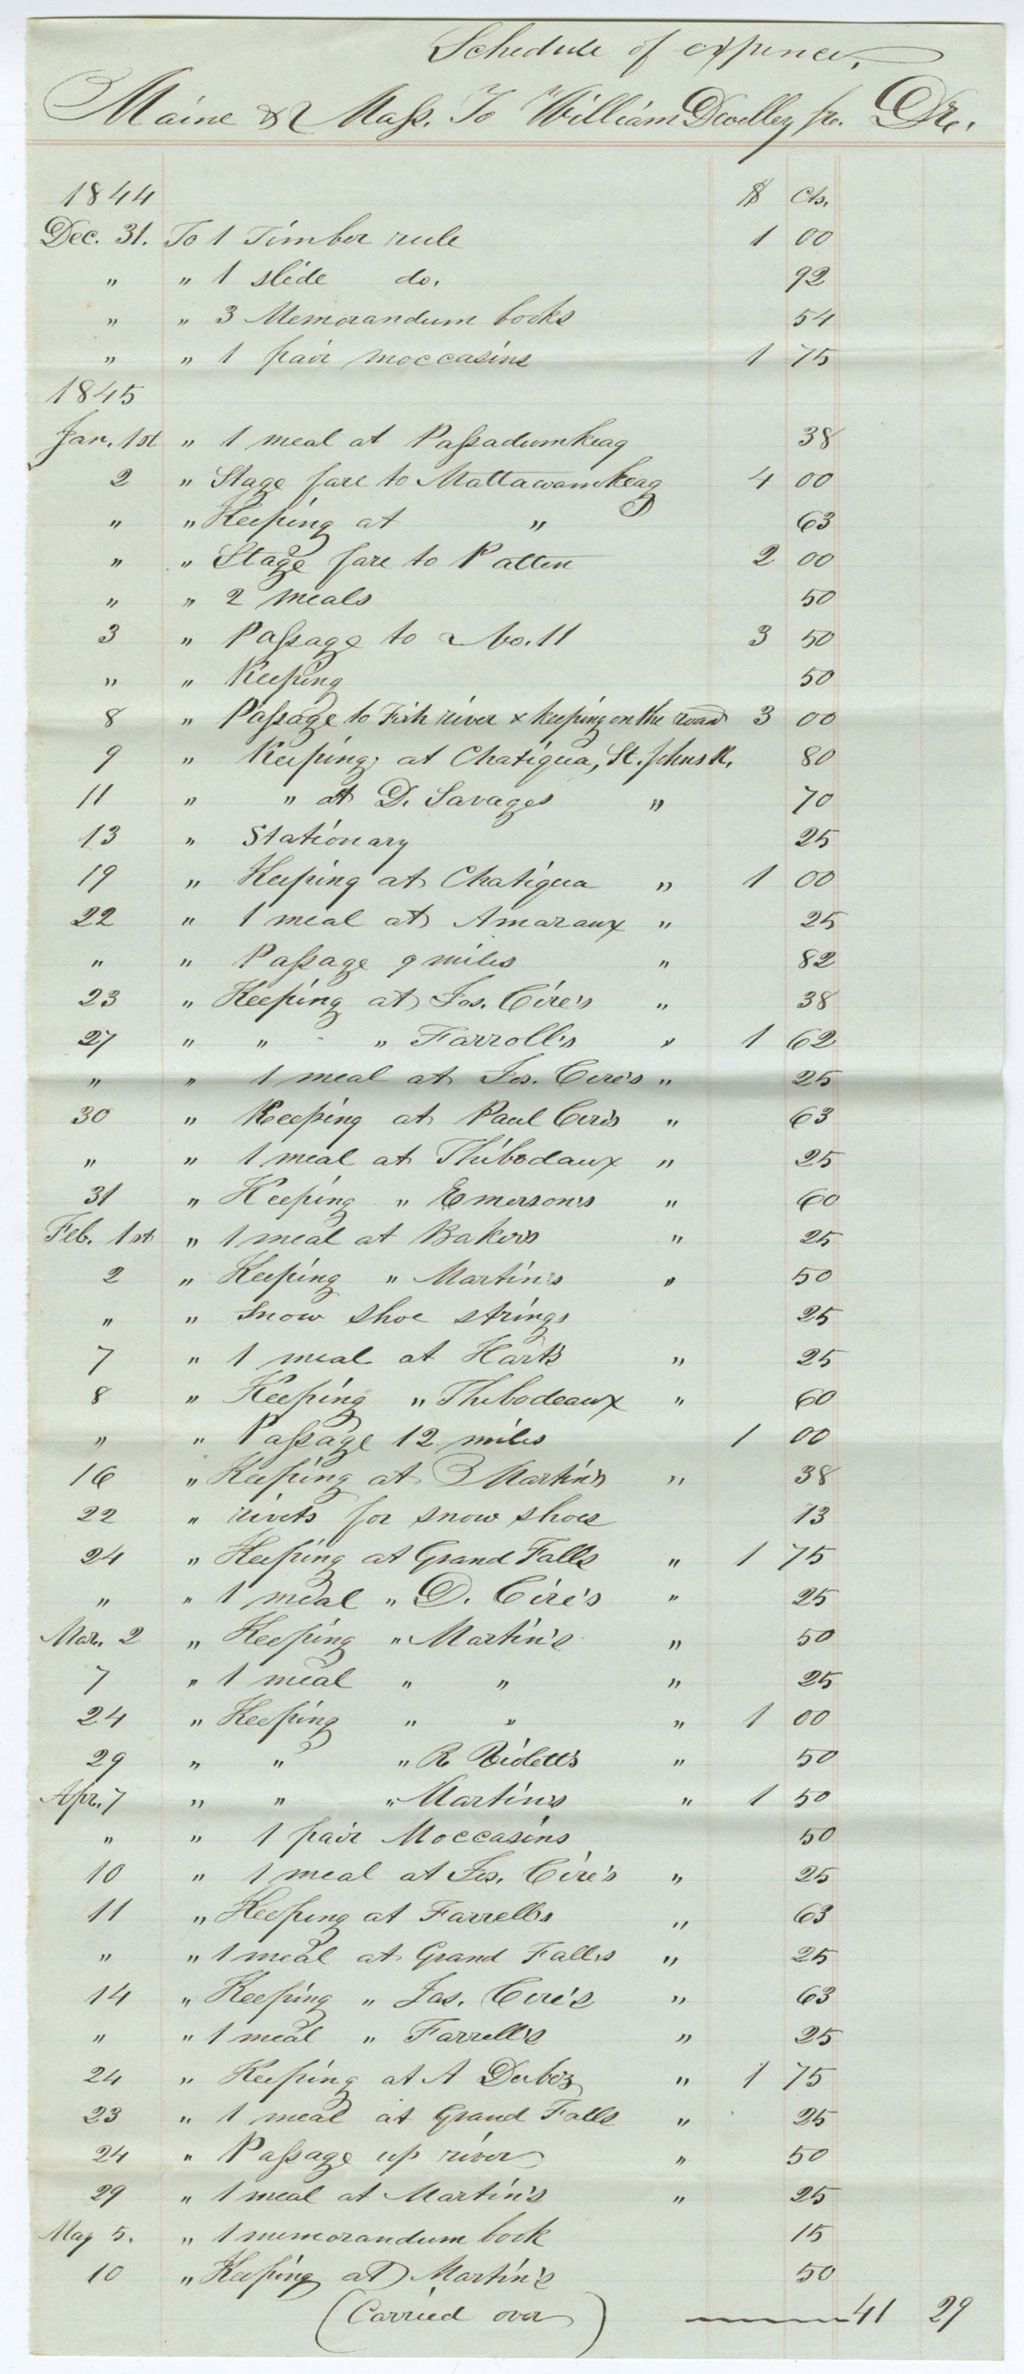 Schedule of expence,
Maine & Mass. To William Dwelley jr. Dr.
1844 $ cts.
Dec. 31. To 1 Timber rule 1 00
" " 1 slide do. 92
" " 3 Memorandum books 54
" " 1 pair moccasins 1 75
1845
Jan. 1st " 1 meal at Passadumkeag 38
2 " Stage fare to Mattawamkeag 4 00
" " Keeping at " 63
" " Stage fare to Patten 2 00
" " 2 meals 50
3 " Passage to No. 11 3 50
" " Keeping 50
8 " Passage to Fish river & keeping on the road 3 00
9 " Keeping at Chatiqua, St. Johns R. 80
11 " " at D. Savages " 70
13 " Stationary 25
19 " Keeping at Chatiqua " 1 00
22 " 1 meal at Amaraux " 25
" " Passage 9 miles " 82
23 " Keeping at Jos. Cire's " 38
27 " " " Farroll's " 1 62
" " 1 meal at Jos. Cire's " 25
30 " Keeping at Paul Cire's " 63
" " 1 meal at Thibodaux " 25
31 " Keeping " Emerson's " 60
Feb. 1st " 1 meal at Bakers " 25
2 " Keeping " Martin's " 50
" " Snow shoe strings 25
7 " 1 meal at Hart's " 25
8 " Keeping " Thibodeaux " 60
" " Passage 12 miles 1 00
16 " Keeping at B Martin's " 38
22 " rivets for snow shoes 13
24 " Keeping at Grand Falls " 1 75
" " 1 meal " D. Cire's " 25
Mar. 2 " Keeping " Martin's " 50
7 " 1 meal " " " 25
24 " Keeping " " " 1 00
29 " " " R " 50
Apr. 7 " " " Martins " 1 50
" " 1 pair Moccasins 50
10 " 1 meal at Jos. Cire's " 25
11 " Keeping at Farrells " 63
" " 1 meal at Grand Falls " 25
14 " Keeping " Jos. Cire's " 63
" " 1 meal " Farrell's " 25
24 " Keeping at A " 1 75
23 " 1 meal at Grand Falls " 25
24 " Passage up river " 50
29 " 1 meal at Martin's " 25
May 5. " 1 memorandum book 15
10 " Keeping at Martin's 50
(Carried over) 41 29